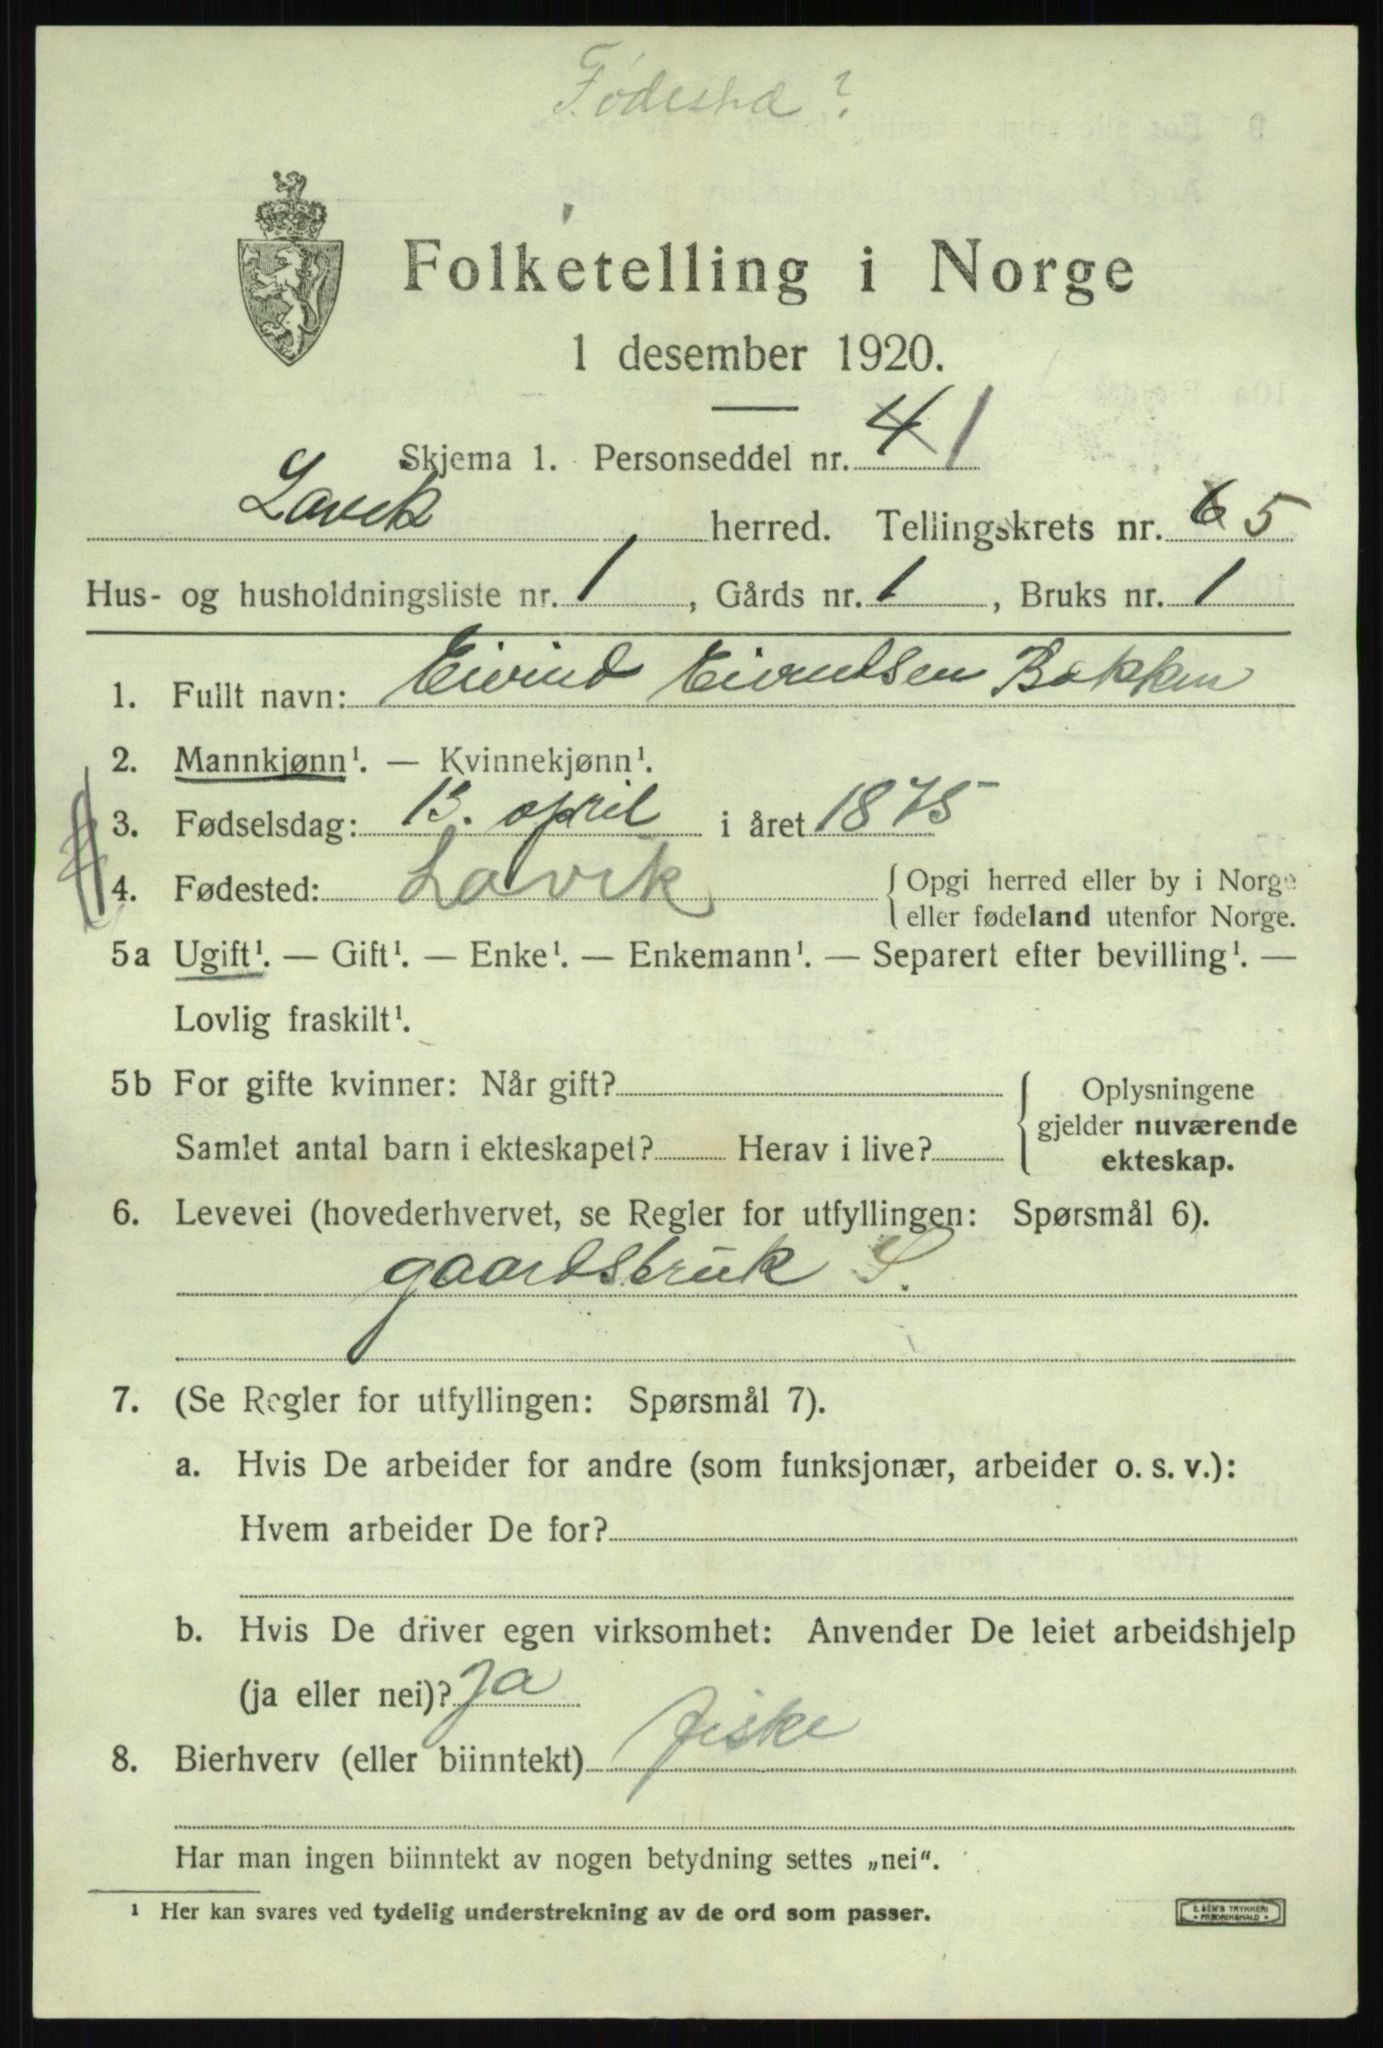 Fødested?
Folketelling i Norge
1 desember 1920.
Skjema 1. Personseddel nr. 4 1
Lavik herred. Tellingskrets nr. 6 5
Hus- og husholdningsliste nr. 1, Gårds nr. 1, Bruks nr. 1
1. Fullt navn: Eivind Eivindsen Bakken
2. Mannkjønn¹. — Kvinnekjønn¹.
3. Fødselsdag: 13. april i året 1875
4. Fødested: Lavik { Opgi herred eller by i Norge
eller fødeland utenfor Norge.
5a Ugift¹. — Gift¹. — Enke¹. — Enkemann¹. — Separert efter bevilling¹. —
Lovlig fraskilt¹.
5b For gifte kvinner: Når gift?
Samlet antal barn i ekteskapet? Herav i live?
Oplysningene
gjelder nuværende
ekteskap.
6. Levevei (hovederhvervet, se Regler for utfyllingen: Spørsmål 6).
gaardsbruk S.
7. (Se Regler for utfyllingen: Spørsmål 7).
a. Hvis De arbeider for andre (som funksjonær, arbeider o. s. v.):
Hvem arbeider De for?
b. Hvis De driver egen virksomhet: Anvender De leiet arbeidshjelp
(ja eller nei)? Ja
8. Bierhverv (eller biinntekt) fiske
Har man ingen biinntekt av nogen betydning settes „nei“.
¹ Her kan svares ved tydelig understrekning av de ord som passer.
E. SEM'S TRYKKERI
• FREDRIKSHALD •